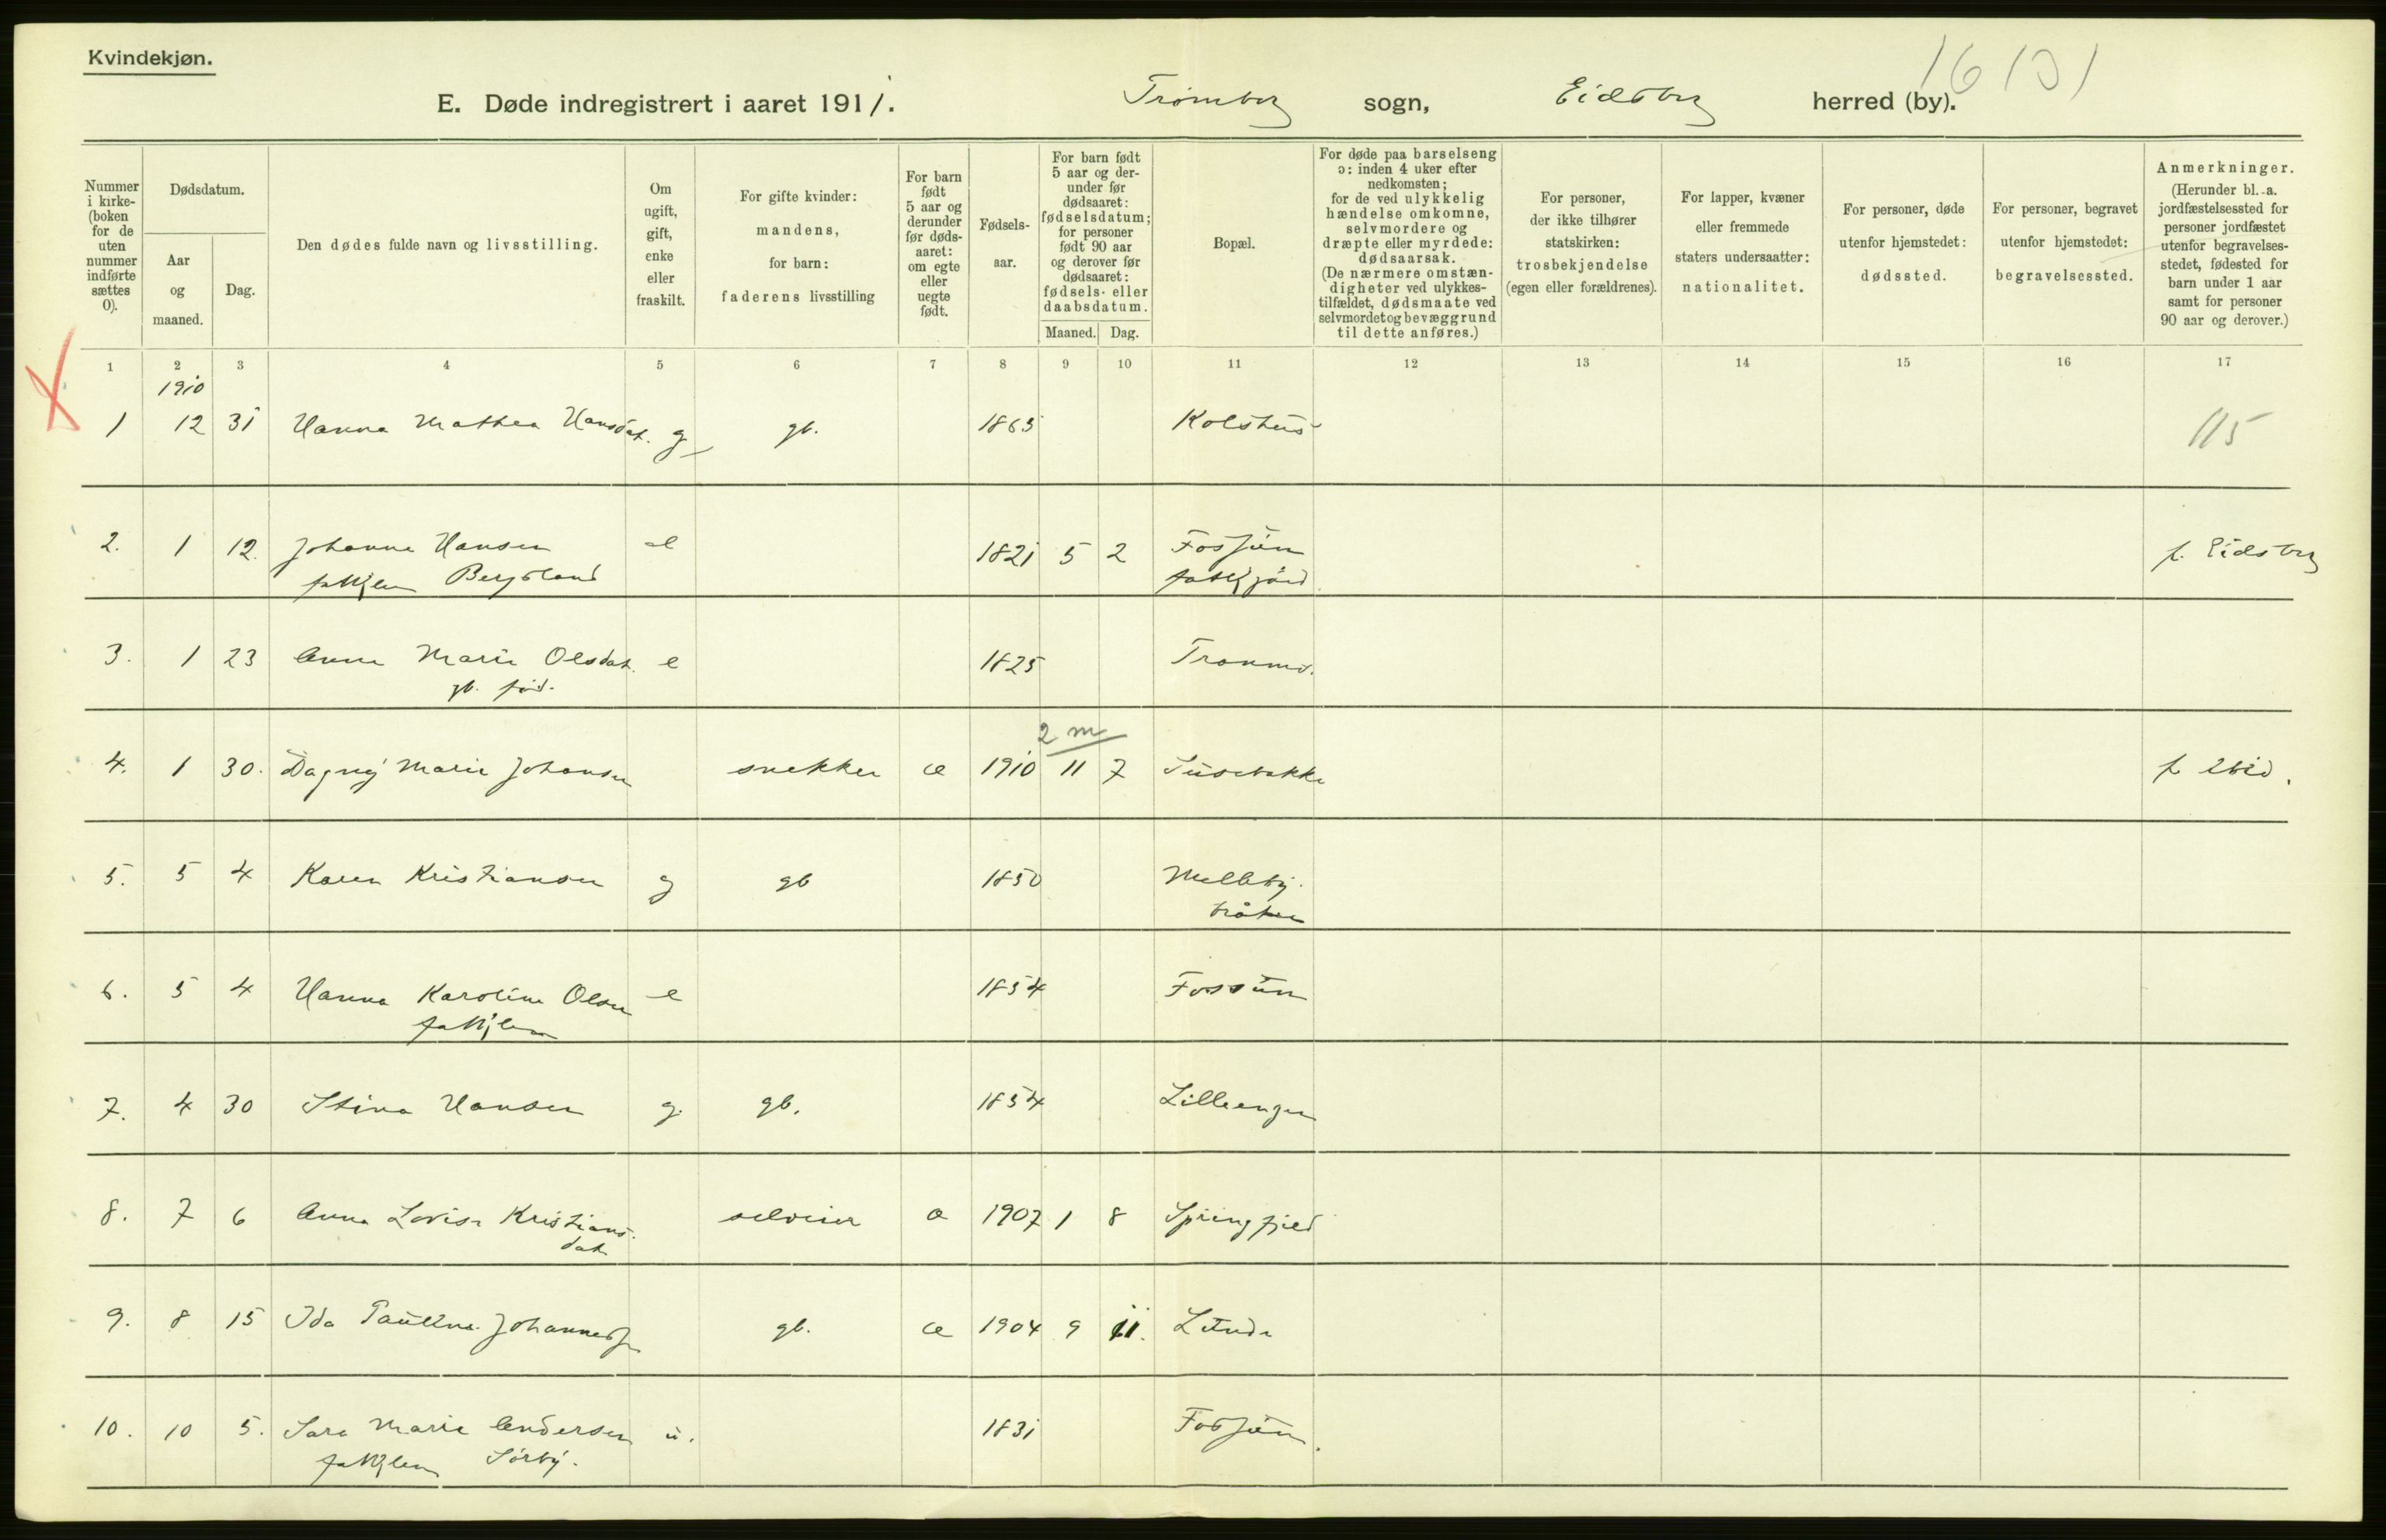 Kvindekjøn.
16 101
E. Døde indregistrert i aaret 1911. Trømborg sogn, Eidsberg herred (by).
Nummer i kirke- (boken for de uten nummer indførte sættes 0).
Dødsdatum.
Aar og maaned.
Dag.
Den dødes fulde navn og livsstilling.
Om ugift, gift, enke eller fraskilt.
For gifte kvinder: mandens, for barn: faderens livsstilling
For barn født 5 aar og derunder før døds- aaret: om egte eller uegte født.
Fødsels- aar.
For barn født 5 aar og der- under før dødsaaret: fødselsdatum; for personer født 90 aar og derover før dødsaaret: fødsels- eller daabsdatum.
Maaned. Dag.
Bopæl.
For døde paa barselseng ɔ: inden 4 uker efter nedkomsten; for de ved ulykkelig hændelse omkomne, selvmordere og dræpte eller myrdede: dødsaarsak. (De nærmere omstæn- digheter ved ulykkes- tilfældet, dødsmaate ved selvmordet og bevæggrund til dette anføres.)
For personer, der ikke tilhører statskirken: trosbekjendelse (egen eller forældrenes).
For lapper, kvæner eller fremmede staters undersaatter: nationalitet.
For personer, døde utenfor hjemstedet: dødssted.
For personer, begravet utenfor hjemstedet: begravelsessted.
Anmerkninger. (Herunder bl. a. jordfæstelsessted for personer jordfæstet utenfor begravelses- stedet, fødested for barn under 1 aar samt for personer 90 aar og derover.)
1 2 3 4 5 6 7 8 9 10 11 12 13 14 15 16 17
1910
1 12 31 Hanna Mathea Hansdat. g gb. 1863 Kolshus 115
2. 1 12. Johanne Hansen e 1821 5 2 Fossum f. Eidsberg
fattiglem Bergsland fattiggård.
3. 1 23 Anne Marie Olsdat. e 1825 Tronrud.
gb. fød.
2 m
4. 1 30. Dagny Marie Johansen snekker æ 1910 11 7 Susebakke f. ibid.
5. 5 4 Karen Kristiansen g gb 1850 Melleby.
bråten
6. 5 4 Hanna Karoline Olsen e 1854 Fossum
fattiglem
7. 4 30 Stina Hansen g. gb. 1854 Lilleengen
8. 7 6 Anna Lovise Kristians- selveier æ 1907 1 8 Springfjeld
dat.
9. 8 15 Ida Pauline Johannesen gb. æ 1904 9 11. Lunde
10. 10 5. Sara Marie Andersen u. 1831 Fossum.
fattiglem Sørby.